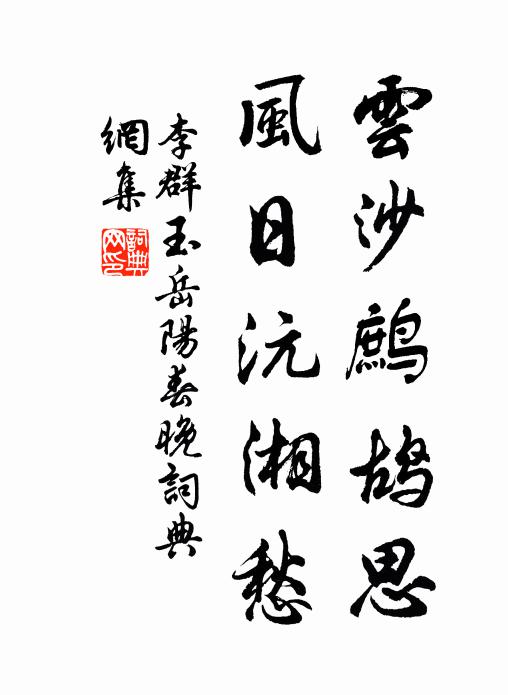 雲沙鷓鴣思
風日沅湘愁
李群玉岳陽春晚詞典
網集
詞典网印